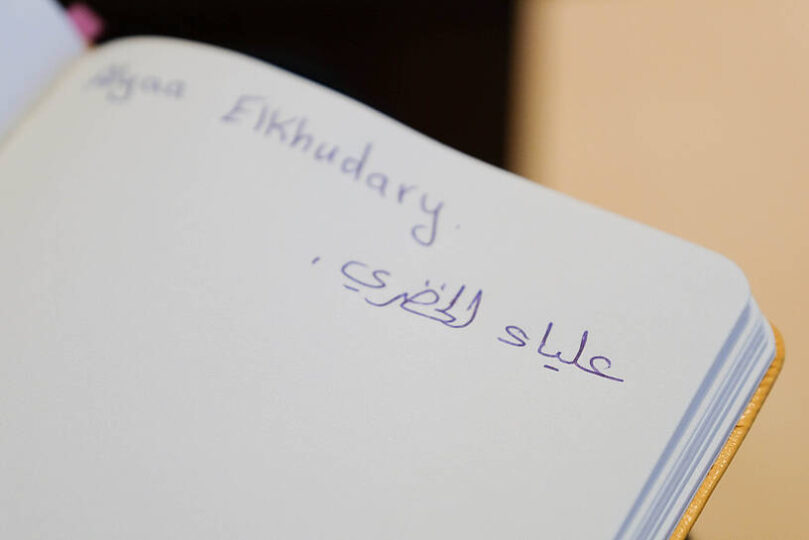 Alyaa ElKhudary.
علياء الخضري .